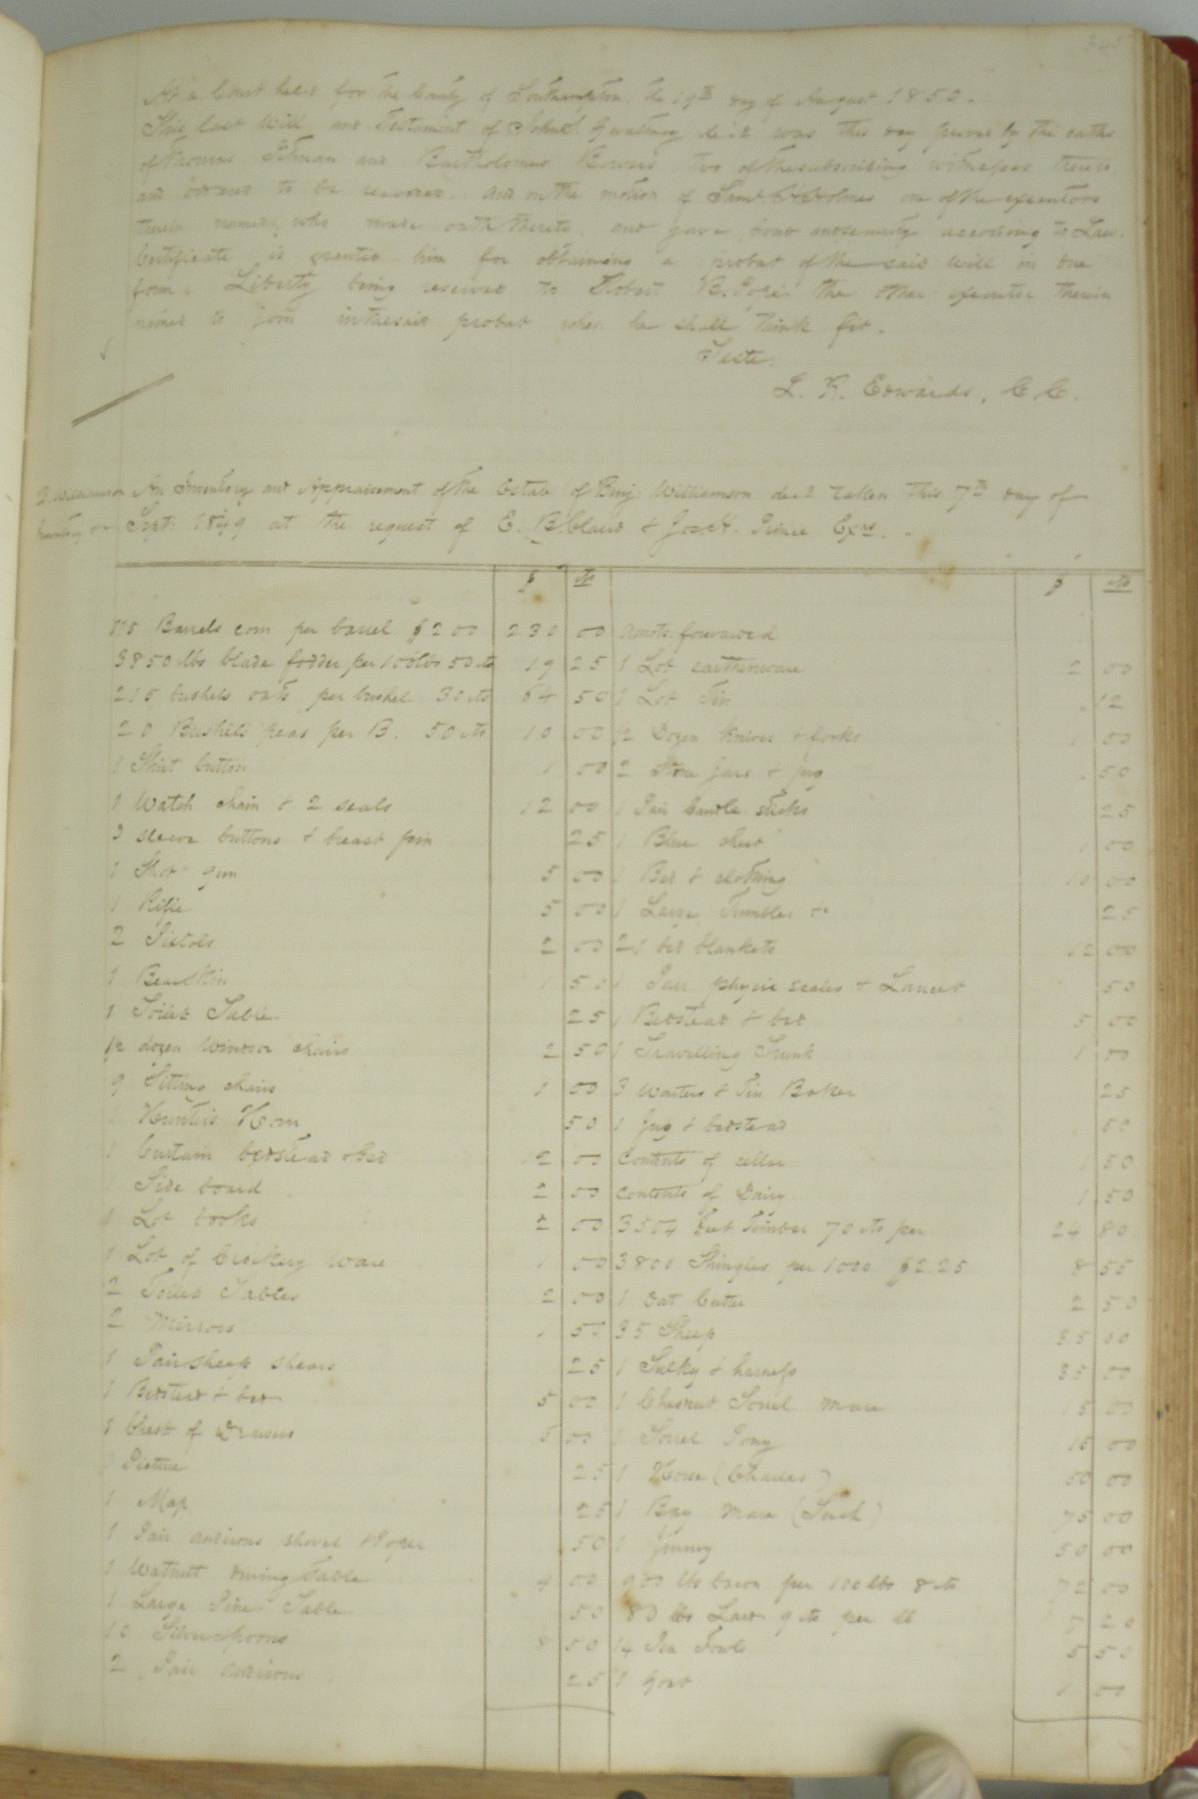 345
At a Court held for the County of Southampton the 19th day of August 1850.
This last Will and Testament of John Gwaltney dec'd was this day proved by the oaths
of Thomas Pitman and Bartholomew Bowers two of the subscribing witnesses thereto
and ordered to be recorded. And on the motion of Saml. Holmes one of the executors
therein named, who made oath thereto, and gave bond and security according to Law.
Certificate is granted him for obtaining a probat of the said Will in due
form. Liberty being reserved to Robert B. Pope the other executor therein
named to join in the said probat when he shall think fit.
Teste.
L. R. Edwards, C. C.
B. Williamson An Inventory and Appraisement of the Estate of Benj: Williamson dec'd taken this 7th day of
Inventory &c Sept: 1849 at the request of E. B. Claud & Jos. H. Prince Exrs.
$ cts $ cts
115 Barrels corn per barrel $2 00 230 00 Amots. forwarded
3850 lbs blade fodder per 100 lbs 50 cts 19 25 1 Lot earthenware 2 00
215 bushels oats per bushel 30 cts 64 50 1 Lot Tin 12
20 Bushels peas per B. 50 cts 10 00 1/2 Dozen knives & forks 1 00
1 Shirt button 1 00 2 Stone Jars & jug 50
1 Watch chain & 2 seals 12 00 1 Pair Candle sticks 25
3 sleeve buttons & breast pin 25 1 Blue chest 1 00
1 Shot gun 5 00 1 Bed & clothing 10 00
1 Rifle 5 00 1 Large Tumbler &c 25
2 Pistols 2 00 21 bed blankets 12 00
1 Bearskin 1 50 1 Pair physic scales & Lancet 50
1 Toilet Table 25 1 Bedstead & bed 5 00
1/2 dozen Windsor chairs 2 50 1 Travelling Trunk 1 00
9 Sitting chairs 1 00 3 Waiters & Tin Baker 25
1 Hunter's Horn 50 1 Jug & bedstead 50
1 Curtain bedstead & bed 12 00 Contents of cellar 1 50
1 Side board 2 00 contents of Dairy 1 50
1 Lot books 2 00 3504 Feet Timber 70 cts per 24 80
1 Lot of Crockery Ware 1 00 3800 Shingles per 1000 $2.25 8 55
2 Toilet Tables 2 00 1 Oat Cutter 2 50
2 Mirrors 1 50 35 Sheep 35 00
1 Pair sheep shears 25 1 Sulky & harness 35 00
1 Bedstead & bed 5 00 1 Chesnut Sorrel mare 15 00
1 Chest of Drawers 5 00 1 Sorrel Pony 15 00
1 Picture 25 1 Horse (Charles) 50 00
1 Map 25 1 Bay mare ( ) 75 00
1 Pair andirons shovel & 50 1 Jenney 50 00
1 Walnutt dining Table 4 00 900 lbs bacon per 100 lbs 8 cts 72 00
1 Large Pine Table 50 80 lbs Lard 9 cts per lb 7 20
10 Silver spoons 8 50 14 Pea Fowls 5 50
2 Pair andirons 25 1 Goat 1 00